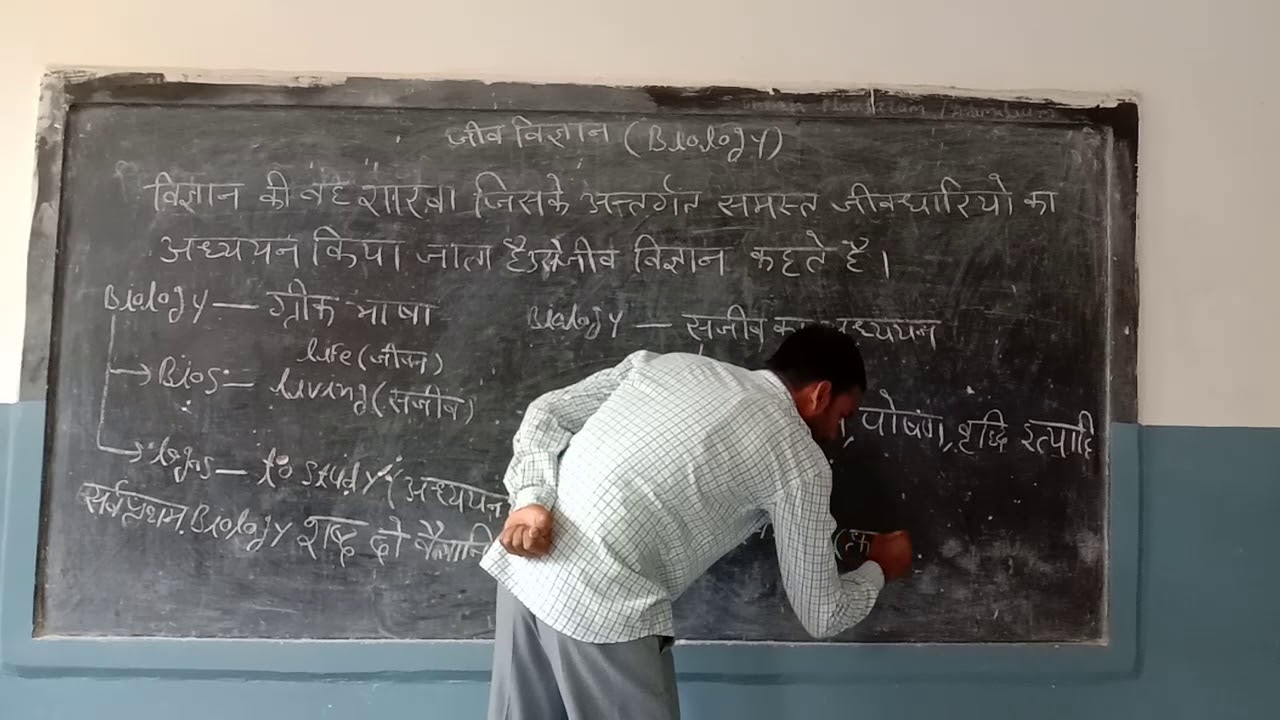 जीव विज्ञान (Biology)
विज्ञान की वह शाखा जिसके अन्तर्गत समस्त जीवधारियो का
अध्ययन किया जाता है उसे जीव विज्ञान कहते है।
Biology — ग्रीक भाषा
life (जीवन)
→ Bios — living (सजीव)
→ logos — to study (अध्ययन
सर्वप्रथम Biology शब्द दो
Biology — सजीव का अध्ययन
, पोषण, वृद्धि इत्यादि